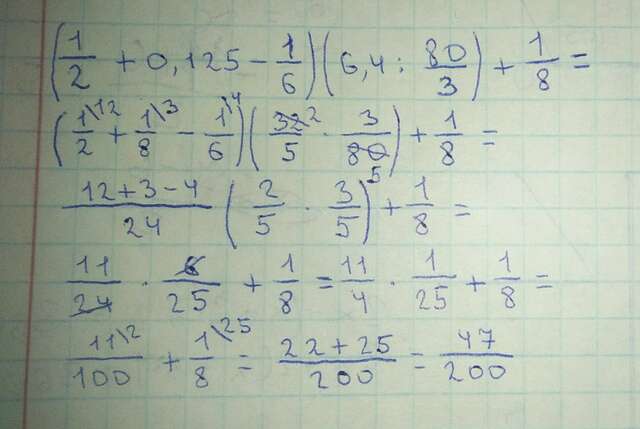 (1/2 + 0,125 - 1/6)(6,4 : 80/3) + 1/8 =
(1\12/2 + 1\3/8 - 1\4/6)(32 2/5 · 3/80 5) + 1/8 =
12+3-4/24 (2/5 · 3/5) + 1/8 =
11/24 · 6/25 + 1/8 = 11/4 · 1/25 + 1/8 =
11\2/100 + 1\25/8 = 22+25/200 = 47/200